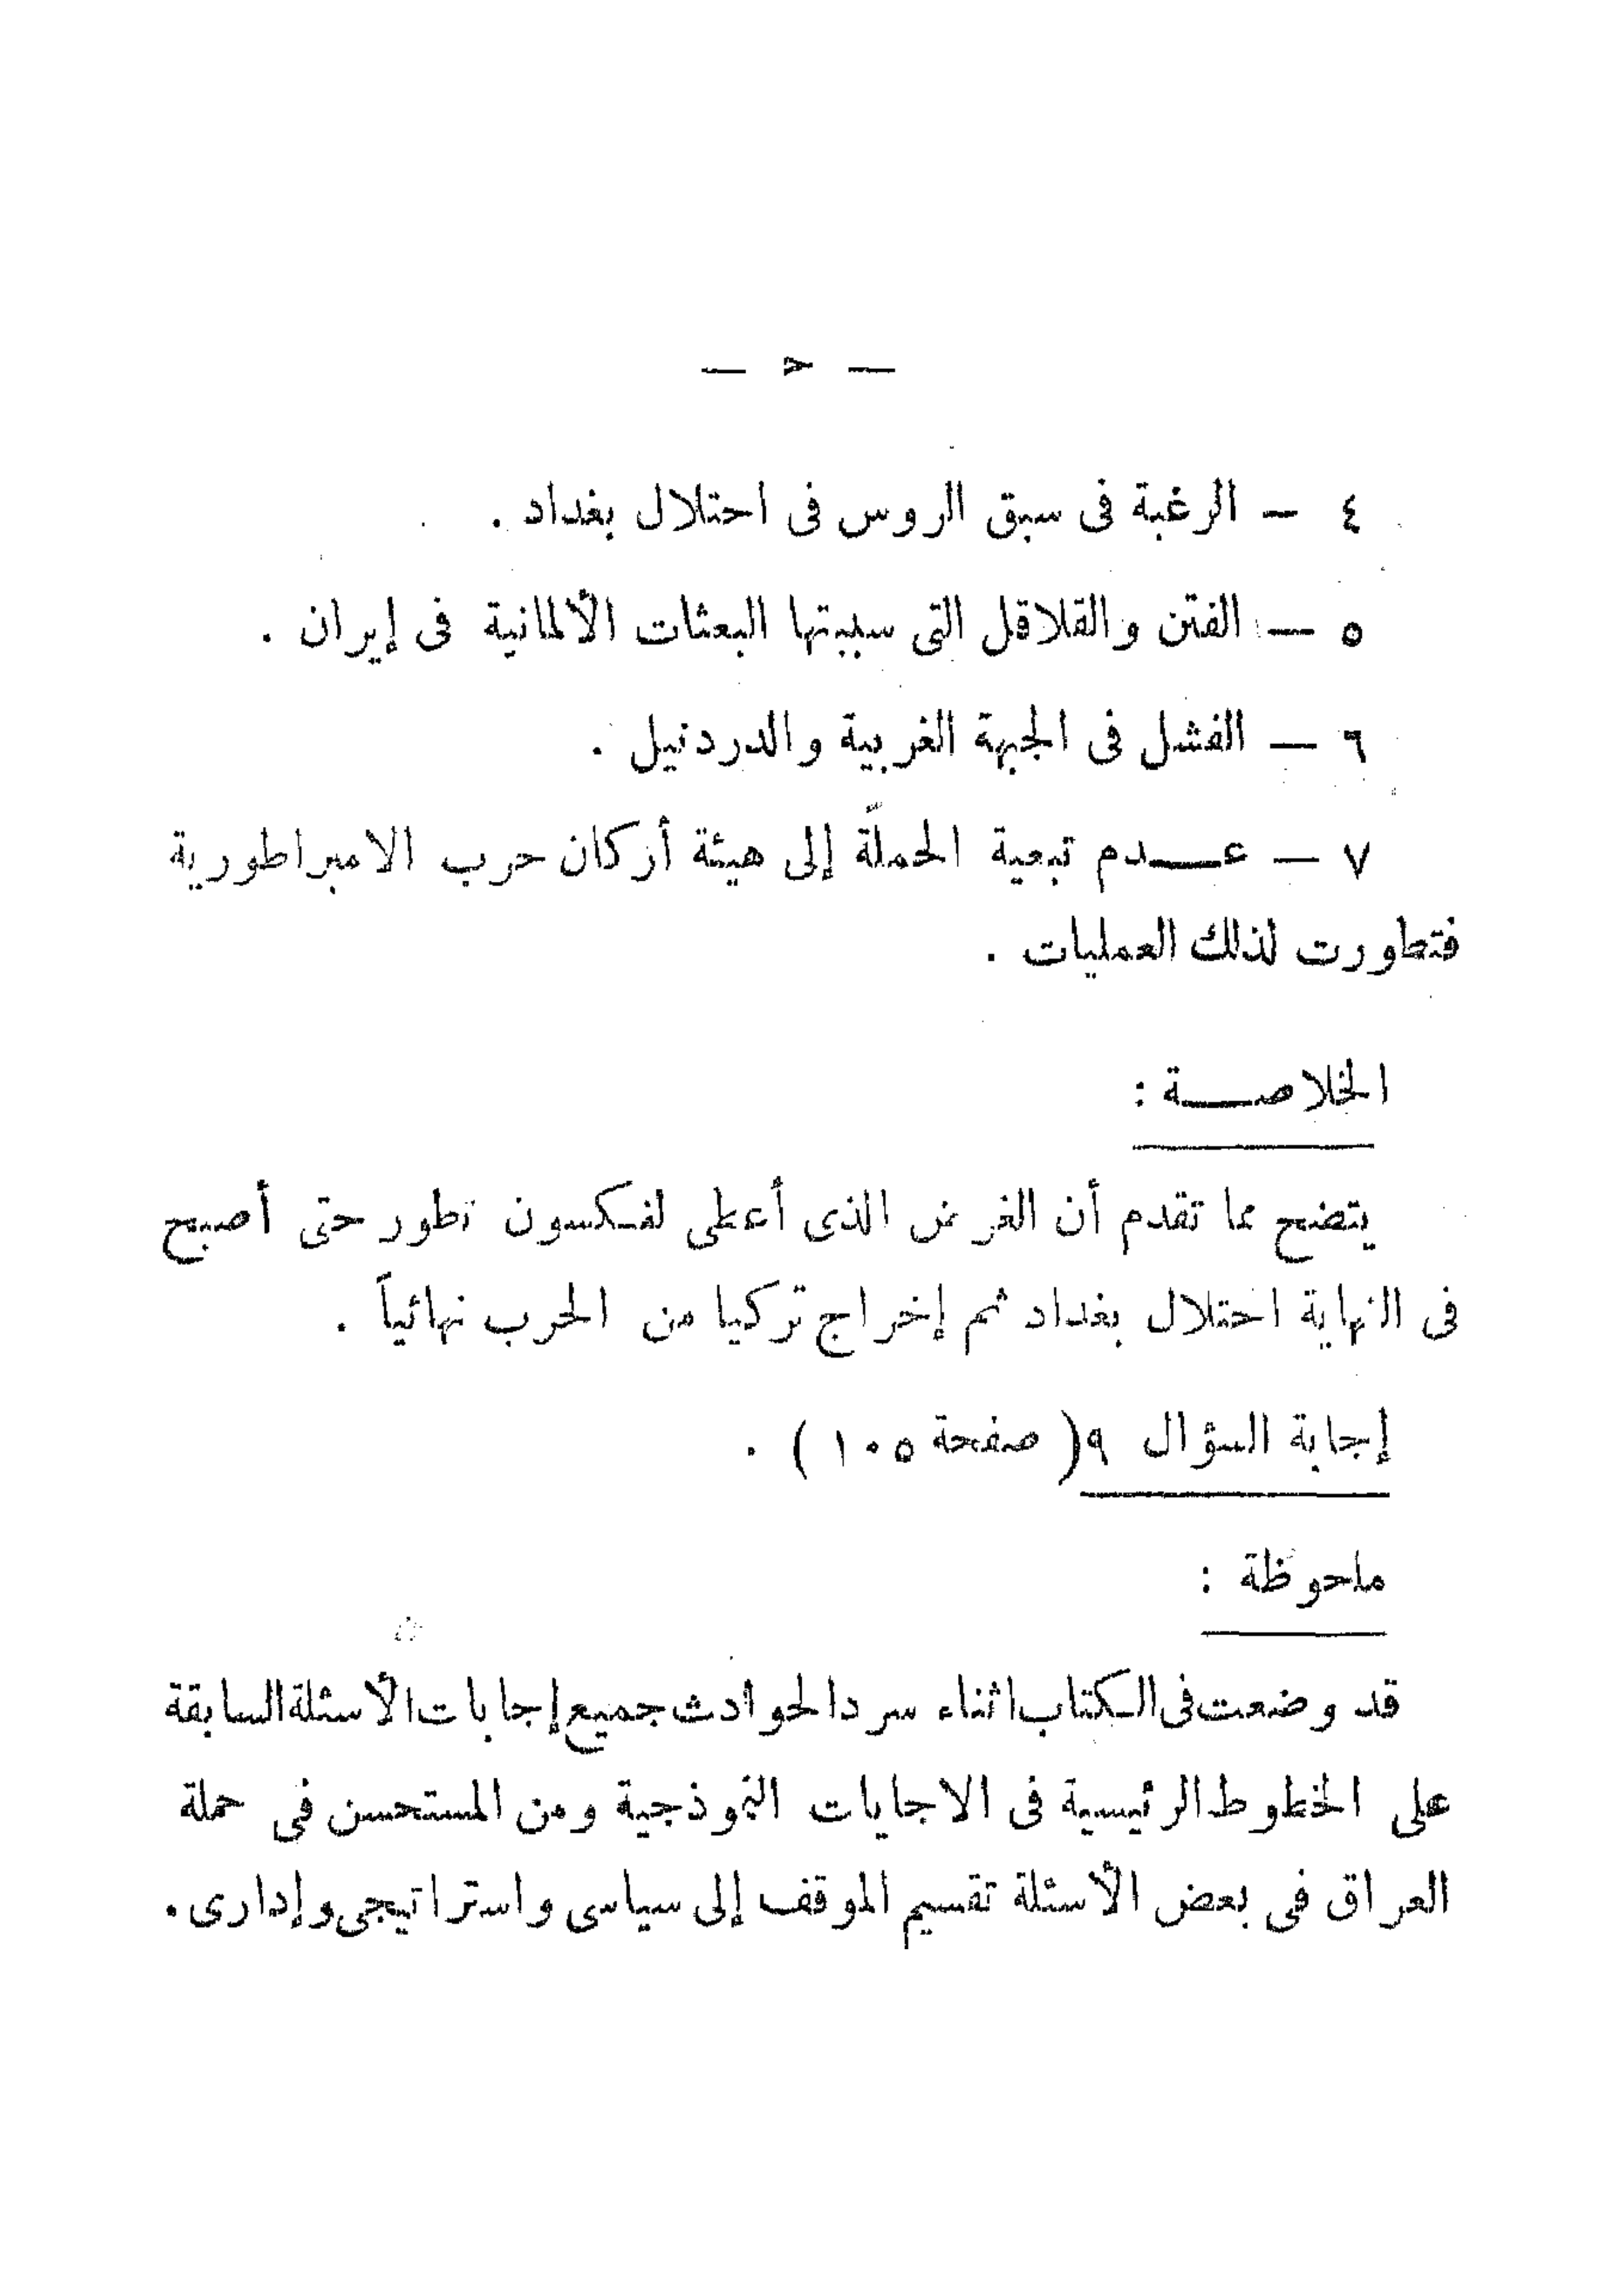 — ح —
٤ — الرغبة فى سبق الروس فى احتلال بغداد .
٥ — الفتن والقلاقل التى سببتها البعثات الألمانية فى إيران .
٦ — الفشل فى الجبهة الغربية والدردنيل .
٧ — عـــدم تبعية الحملة إلى هيئة أركان حرب الامبراطورية
فتطورت لذلك العمليات .
الخلاصـــة :
يتضح مما تقدم أن الغرض الذى أعطى لفكسون تطور حتى أصبح
فى النهاية احتلال بغداد ثم إخراج تركيا من الحرب نهائياً .
إجابة السؤال ٩ ( صفحة ١٠٥ ) .
ملحوظة :
قد وضعت فى الكتاب اثناء سرد الحوادث جميع إجابات الأسئلة السابقة
على الخطوط الرئيسية فى الاجابات النموذجية ومن المستحسن فى حملة
العراق فى بعض الأسئلة تقسيم الموقف إلى سياسى واستراتيجى وإدارى .